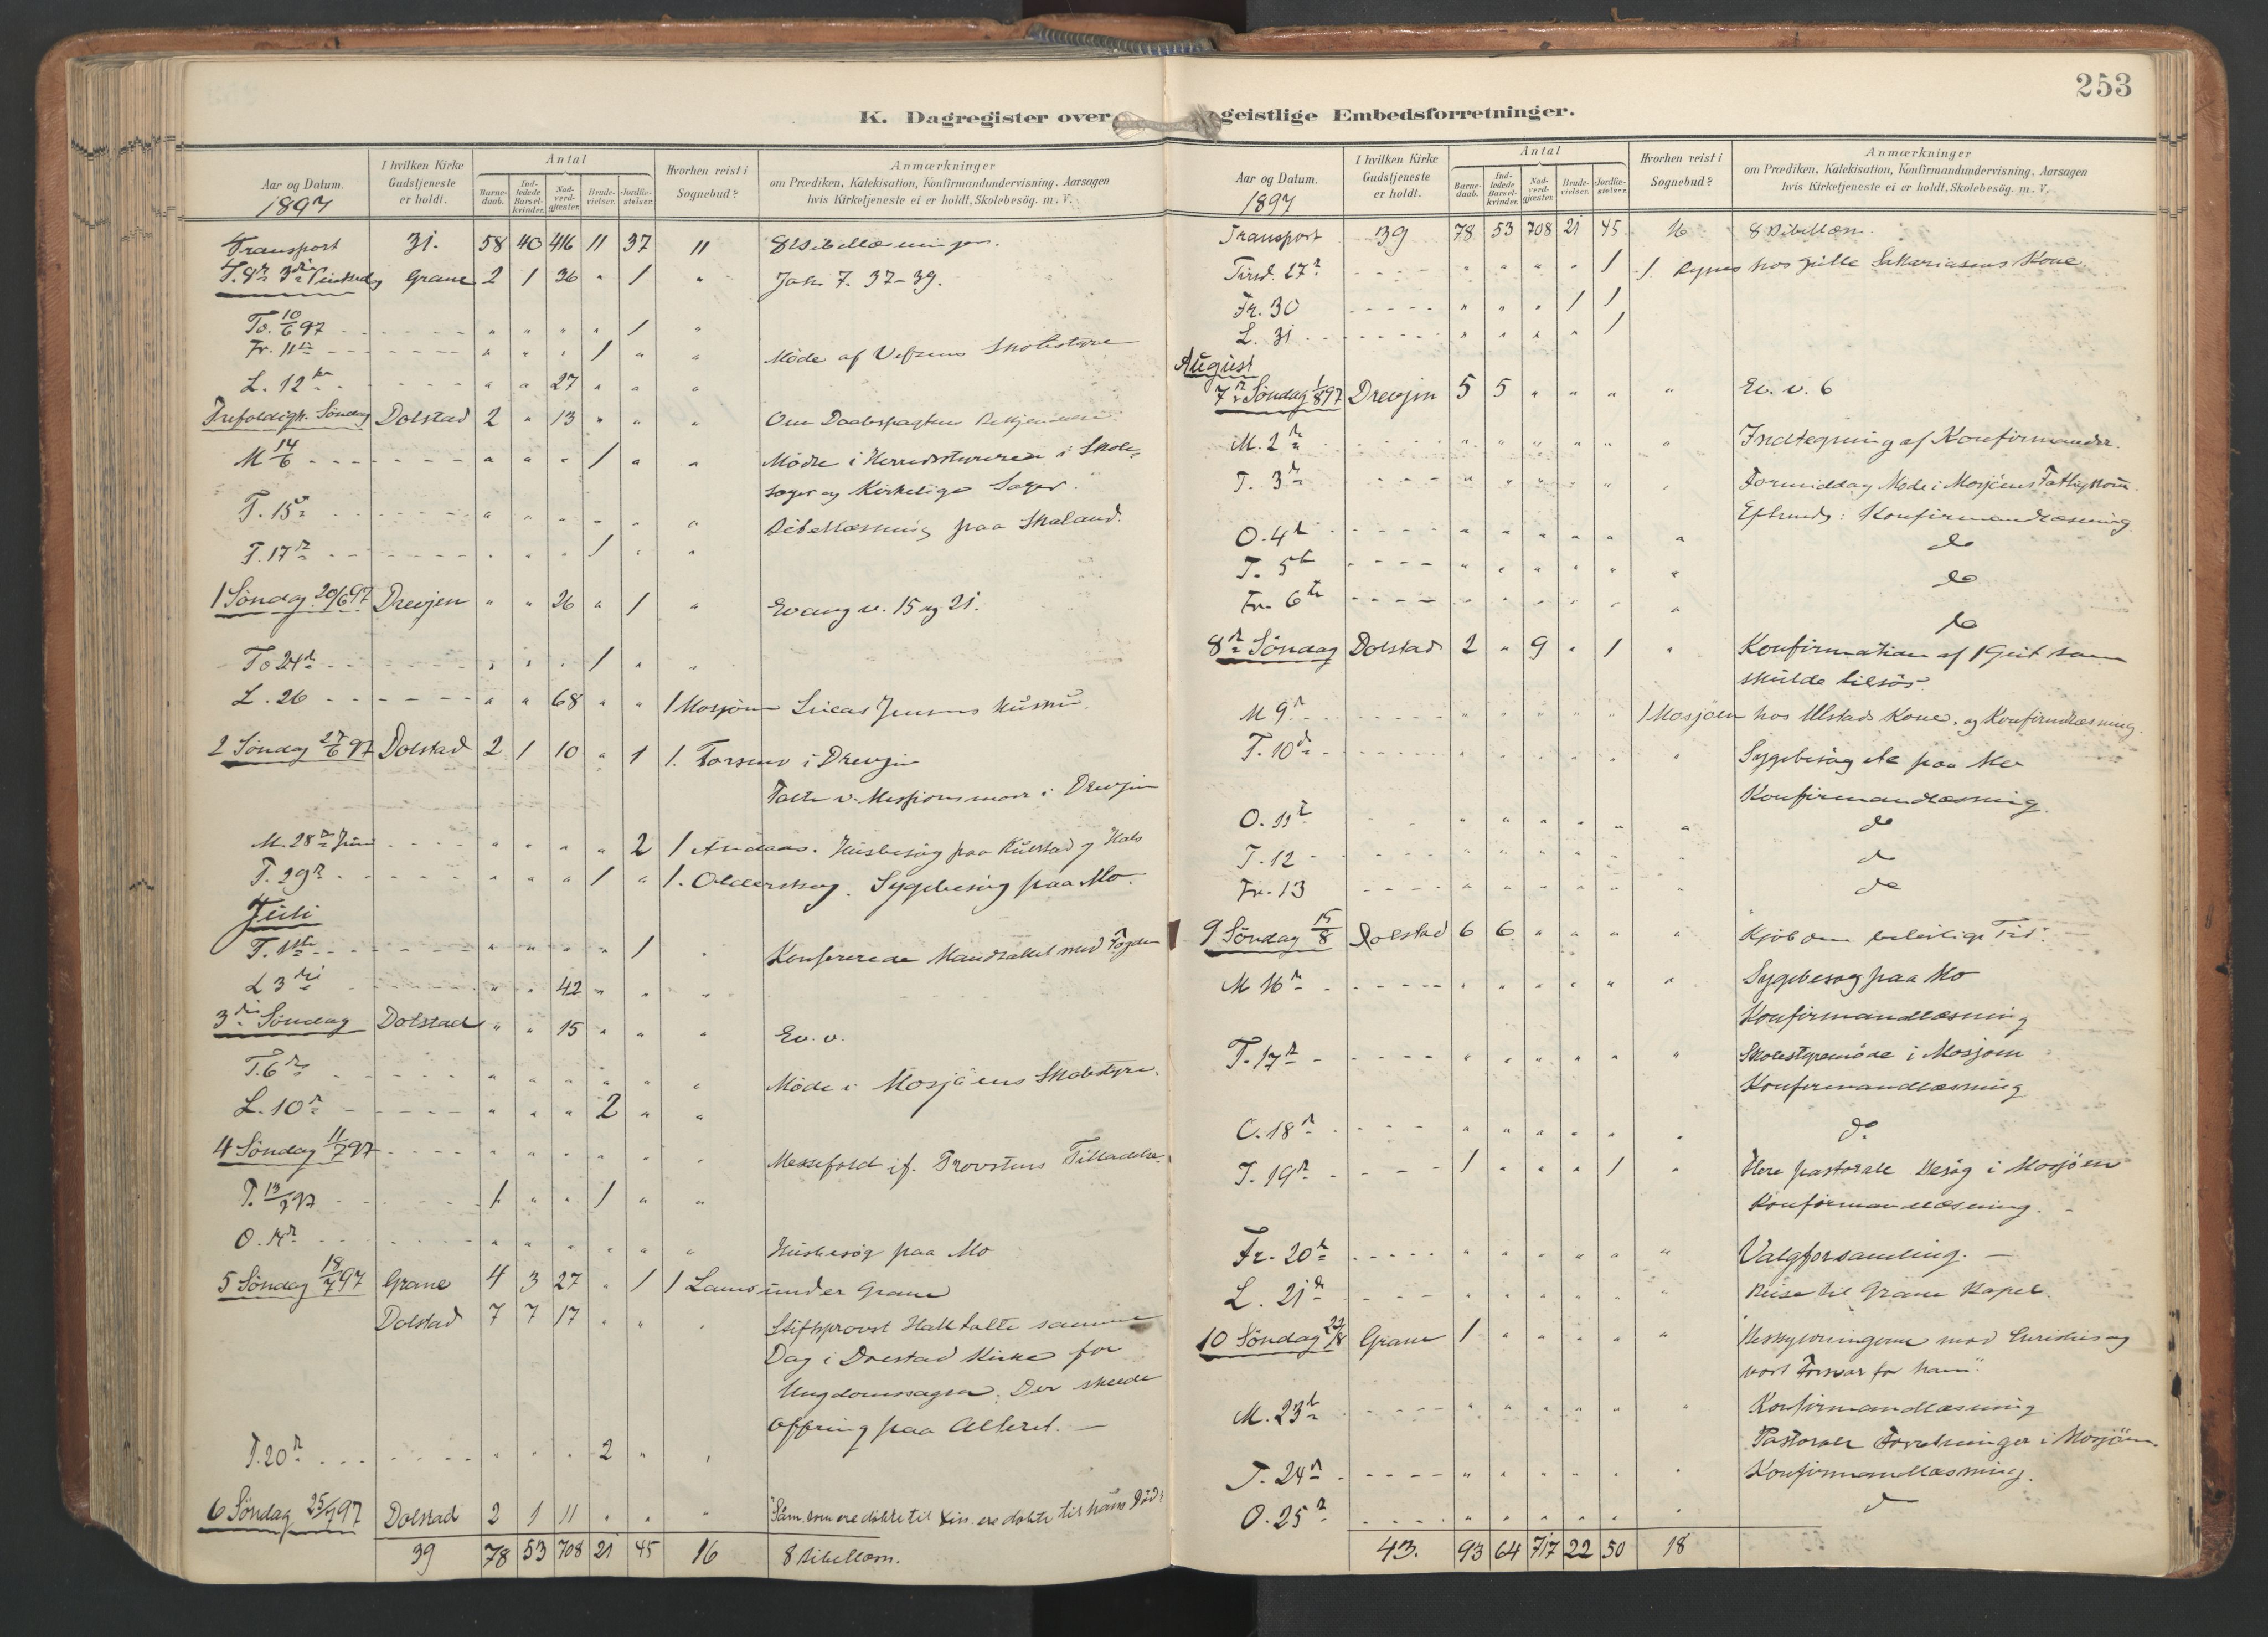 253
K. Dagregister over geistlige Embedsforretninger.
Aar og Datum. 1897 | I hvilken Kirke Gudstjeneste er holdt. | Antal | Barnedaab. | Indledede Barselkvinder. | Nadverdgjæster. | Brudevielser. | Jordfæstelser. | Hvorhen reist i Sognebud? | Anmærkninger om Prædiken, Katekisation, Konfirmandundervisning, Aarsagen hvis Kirketjeneste ei er holdt, Skolebesög. m. V.
Transport 31. 58 40 416 11 37 11 8 Bibellæsninger.
T. 8de 3die Pintsedag Grane 2 1 36 " 1 " Joh. 7. 37-39.
To. 10/6 97 - - - " " " " 1 "
Fr. 11te - - - " " " 1 " " Möde af Vefsens Skolestyre
L. 12te - - - " " 27 " " "
Trefoldigh. Söndag Dolstad 2 " 13 " " " Om Daabspagtens
M 14/6 - - - " " " 1 " " Möde i Herredsstyrerne i Skole-
sager og Kirkelige Sager.
T. 15de - - - " " " " " " Bibellæsning paa Skaland.
T. 17de - - - " " " 1 " "
1 Söndag 20/6 97 Drevjen " " 26 " 1 " Evang v. 15 og 21.
To 24de - - - " " " 1 " "
L. 26 - - - " " 68 " " 1 Mosjöen Lucas Jensens Hustru.
2 Söndag 27/6 97 Dolstad 2 1 10 " 1 1. Forsmo i Drevjen
Talte v. Missionsmöde i Drevjen
M. 28de Juni - - - " " " " 2 1 Andaas. Husbesög paa Kulstad og Hals
T. 29de - - - " " " 1 " 1. Olderskog. Sygebesög paa Mo.
Juli
T. 1ste - - - " " " " 1 " Konfererede Mandtallet med Fogden
L 3die - - - " " 42 " " "
3die Söndag Dolstad " " 15 " " " Ev. v.
T. 6te - - - " " " " " " Möde i Mosjöens Skolestyre.
L. 10de - - - " " " 2 " "
4 Söndag 11/7 97 - - - " " " " " " Messefald if. Provstens Tilladelse.
T. 13/7 97 - - - 1 " " 1 " "
O. 14de - - - " " " " " " Husbesög paa Mo
5 Söndag 18/7 97 Grane 4 3 27 " 1 1 under Grane
Dolstad 7 7 17 " " " Stiftsprovst Hall talte samme
Dag i Dolstad Kirke for
Ungdomssagen. Der skeede
Offring paa Alteret. —
T. 20de - - - " " " 2 " "
6 Söndag 25/7 97 Dolstad 2 1 11 " " " "Saa. som ere döbte til Kris. ere döbte til hans Död"
39 78 53 708 21 45 16 8 Bibellæsn.
Aar og Datum. 1897 | I hvilken Kirke Gudstjeneste er holdt. | Antal | Barnedaab. | Indledede Barselkvinder. | Nadverdgjæster. | Brudevielser. | Jordfæstelser. | Hvorhen reist i Sognebud? | Anmærkninger om Prædiken, Katekisation, Konfirmandundervisning, Aarsagen hvis Kirketjeneste ei er holdt, Skolebesög. m. V.
Transport 39 78 53 708 21 45 16 8 Bibellæsn.
Tirsd. 27de - - - " " " " 1 1. Rynes hos Sakariasens Kone.
Fr. 30 - - - " " " 1 1
L. 31 - - - " " " " 1
August
7de Söndag 1/8 97 Drevjen 5 5 " " " " Ev. v. 6
M. 2den - - - " " " " " " Indtegning af Konfirmander.
T. 3de - - - " " " " " " Formiddag Möde i Mosjöens Fattigkom.
Eftermd: Konfirmandlæsning
O. 4de - - - " " " " " " do
T. 5te - - - " " " " " " do
Fr. 6te - - - " " " " " " do
8de Söndag Dolstad 2 " 9 " 1 " Konfirmation af 1 Gut som
skulde tilsös.
M 9de - - - " " " " " 1 Mosjöen hos Ulstads Kone. og Konfirmlæsning.
T. 10de - - - " " " " " " Sygebesög etc paa Mo
Konfirmandlæsning.
O. 11te - - - " " " " " " do
T. 12 - - - " " " " " " do
Fr. 13 - - - " " " " " " do
9 Söndag 15/8 Dolstad 6 6 " " " " "Kjöb den beleilige Tid".
M 16de - - - " " " " " " Sygebesög paa Mo
Konfirmandlæsning
T. 17de - - - " " " " " " Skolestyremöde i Mosjöen
Konfirmandlæsning
O. 18de - - - " " " " " " do
T. 19de - - - 1 " " " 1 " Flere pastorale Besög i Mosjöen
Konfirmandlæsning. -
Fr. 20de - - - " " " " " " Valgforsamling. —
L. 21de - - - " " " " " " Reise til Grane Kapel.
10 Söndag 22/8 Grane 1 " " " " " "Beskyldningerne mod Kristus og
vort Forsvar for ham".
M. 23de - - - " " " " " " Konfirmandlæsning
Pastorale Forretninger i Mosjöen.
T. 24de - - - " " " " " " Konfirmandlæsning.
O. 25de - - - " " " " " " do
43. 93 64 717 22 50 18